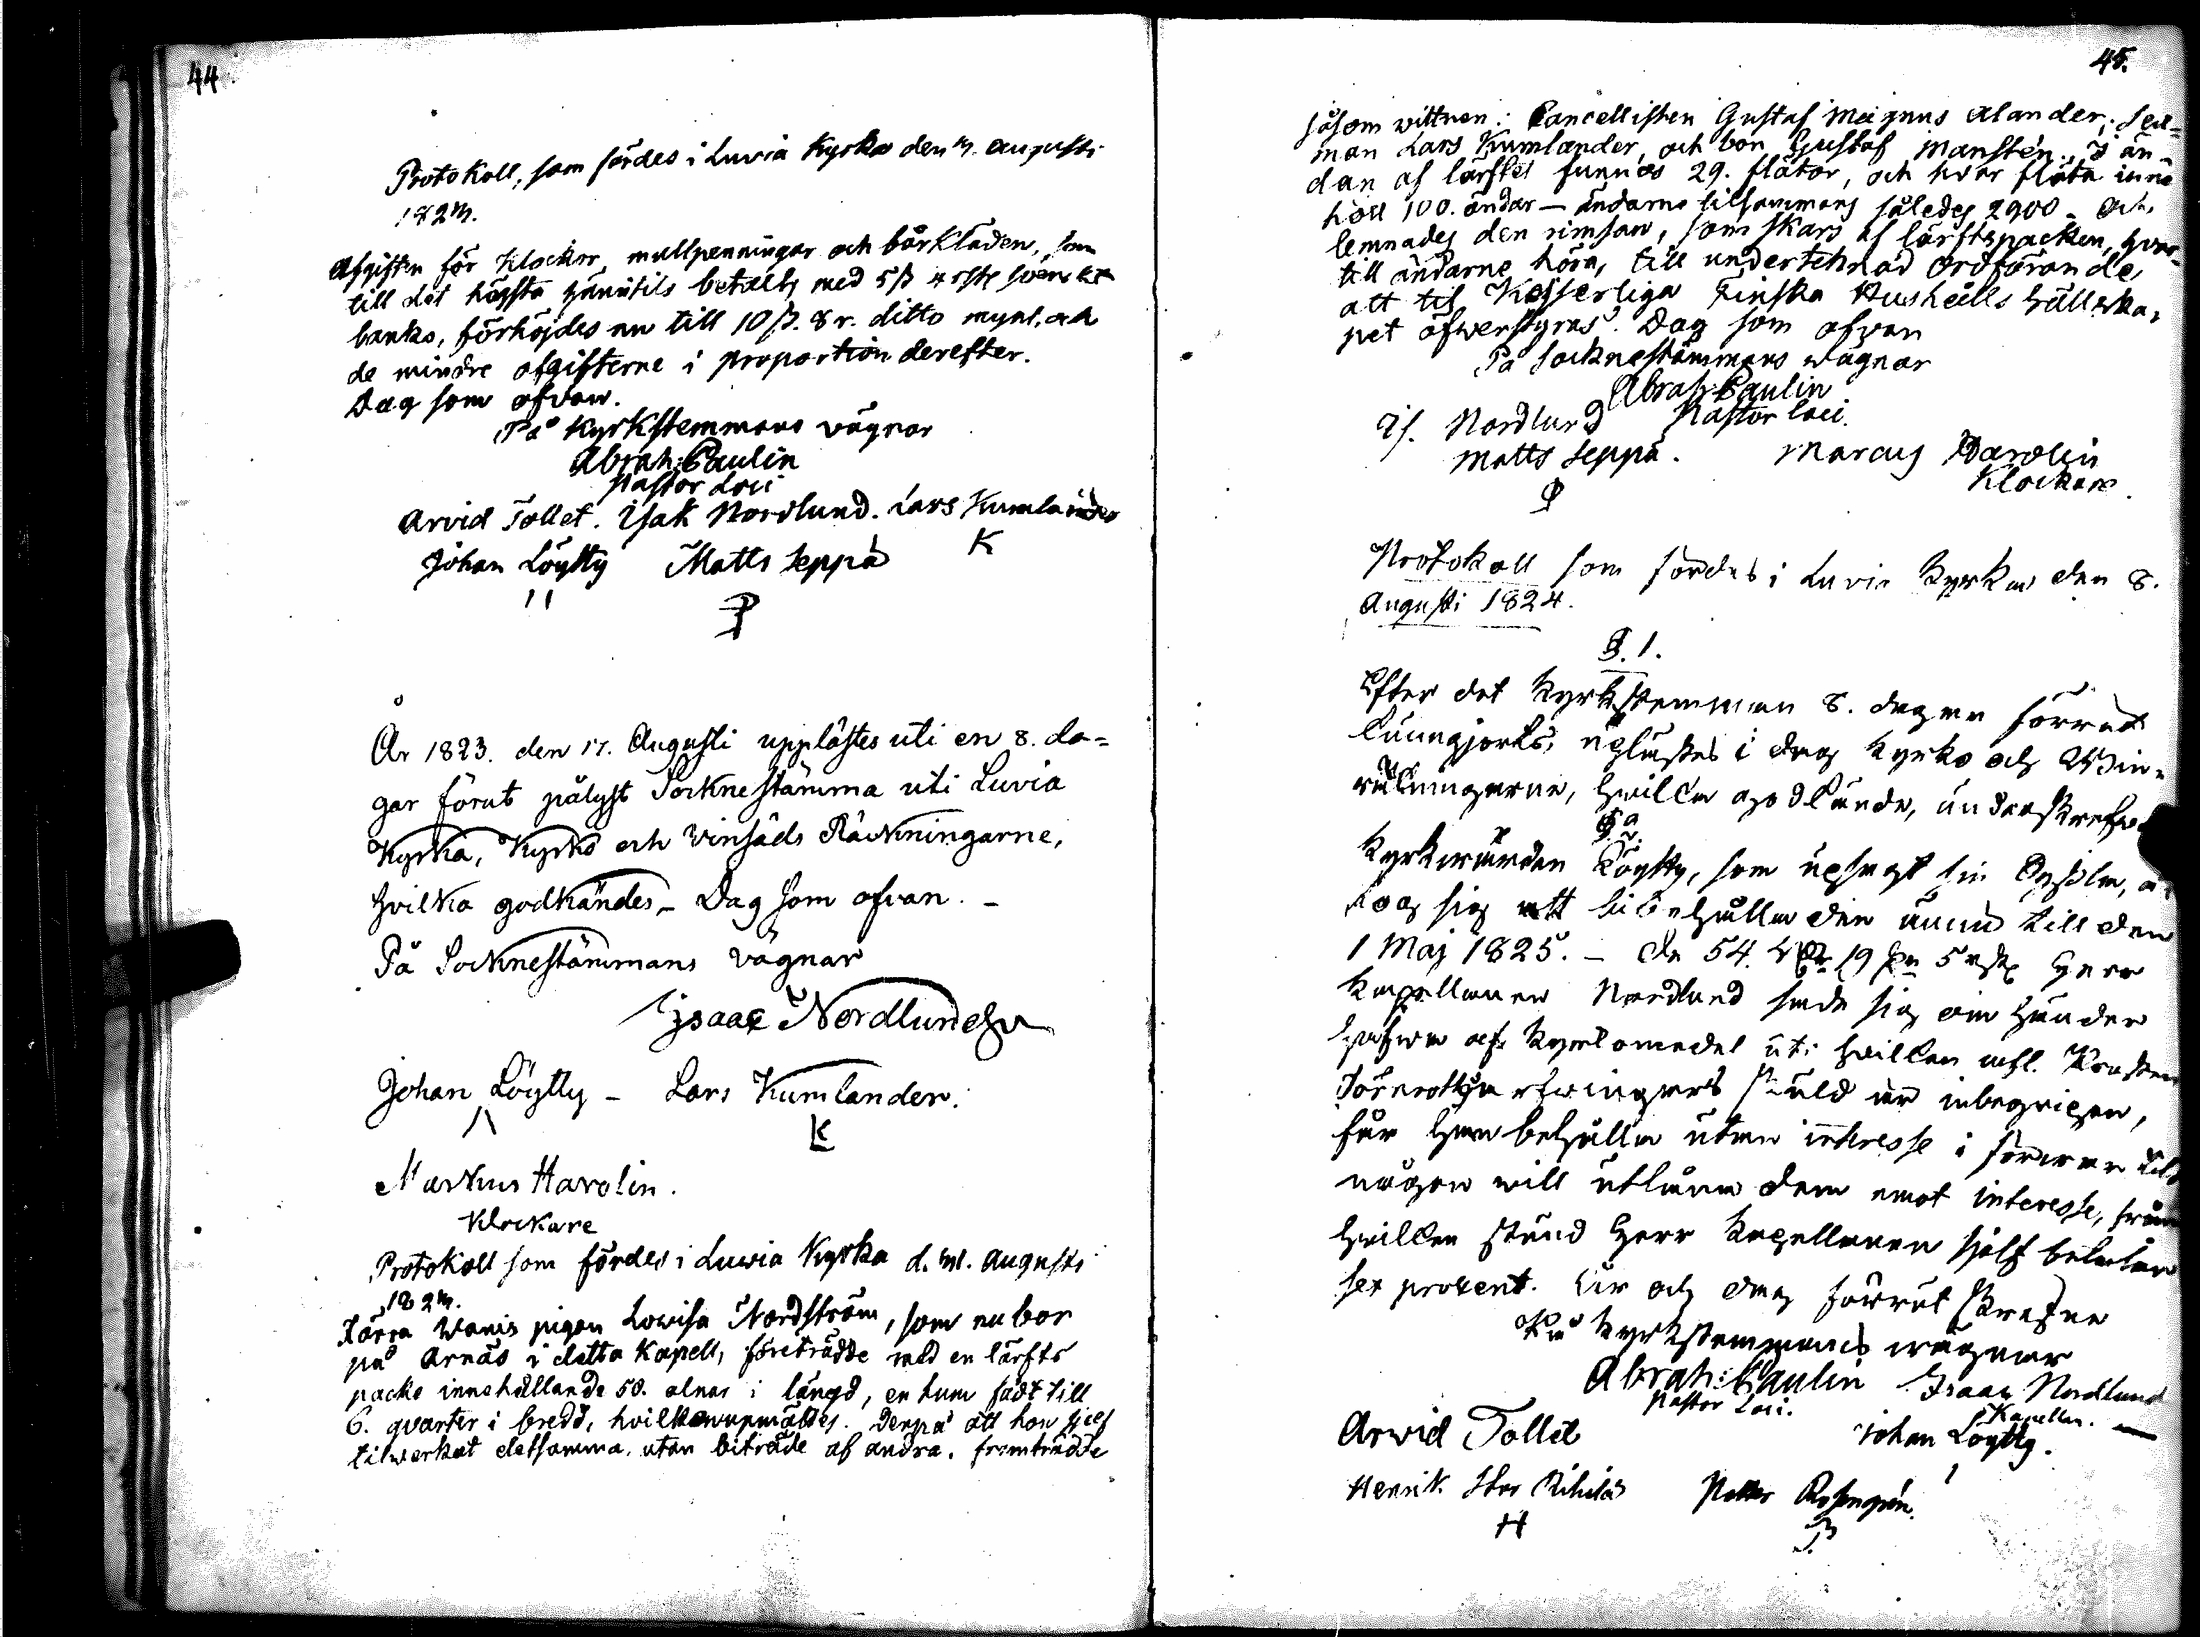 44.
Protokoll, som fördes i Luvia Kyrka den 17. Augusti
1823.
Afgiften för Klockor, mullpenningar och bårkläden, som
till det högsta härintils betalts med 5 ß 4 rst svenskt
banko, förhöjdes nu till 10 ß. 8 r. ditto mynt, och
de mindre afgifterne i proportion derefter.
Dag som ofvan.
På Kyrkstemmans vägnar
Abrah: Paulin
Pastor Loci
Arvid Tollet. Isak Nordlund. Lars Kumlander
Johan Löytty Matts Seppä K
År 1823. den 17. Augusti upplästes uti en 8. da=
gar förut pålyst Socknestämma uti Luvia
Kyrka, Kyrko och Vinsäds Räkningarne,
hvilka godkändes, – Dag som ofvan. –
På Socknestämmans vägnar
Isaac Nordlund
Johan Löytty – Lars Kumlander.
K
Markus Harolin.
Klockare
Protokoll som fördes i Luvia Kyrka d. Augusti
1823.
Förra pigan Lowisa Nordström, som nu bor
på Arnäs i detta Kapell, företrädde med en lärfts
packe innehållande 50. alnar i längd, en tum fådt till
6. qvarter i bredd, hvilken upmättes. Derpå att hon sjelf
tilwerkat detsamma, utan biträde af andra, framträdde
45.
såsom wittnen: Cancellisten Gustaf Magnus Alander, Sex=
man Lars Kumlander, och bon. Gustaf Manstén. I än=
dan af lärftet funnos 29. flätor, och hvar fläta inne
höll 100. ändar – ändarne tilsammans således 2900 – och
lemnades den rimsan, som skars af lärftspacken, hvar=
till ändarne höra, till undertecknad Ordförande,
att til Kejserliga Finska Hushålls Sällska=
pet öfwerstyras. Dag som ofvan
På Socknestämmans wägnar
Abrah: Paulin
Is. Nordlund Pastor loci.
Matts Seppä. Marcus Harolin
Klockare.
Protokoll som fördes i Luvia Kyrka den 8.
Augusti 1824.
§. 1.
Efter det Kyrkstemman 8. dagar förrut
kungjorts, uplästes i dag Kyrko och Win=
räkningarne, hvilka godkände, underskrefwos
§ 2.
Kyrkwärden Löytty, som upsagt sin Syssla,
tog sig att bibehålla den ännu till den
1 Maj 1825. – De 54. 19 5 Herr
Kapellanen Nordlund sade sig om händer
hafwa af Kyrkomedel uti hvilken
skuld är inbegripen,
får han behålla utan interesse i förwar tils
någon will utlåna dem emot interesse, från
hvilken stund Herr Kapellanen sjelf betalar
sex procent. År och dag förrut skrefne
På Kyrkstemmans wägnar
Abrah: Paulin Isaac Nordlund
Pastor Loci. Kapellan.
Arwid Tollet Johan Löytty.
Henrik Petter Rosengrén.
H